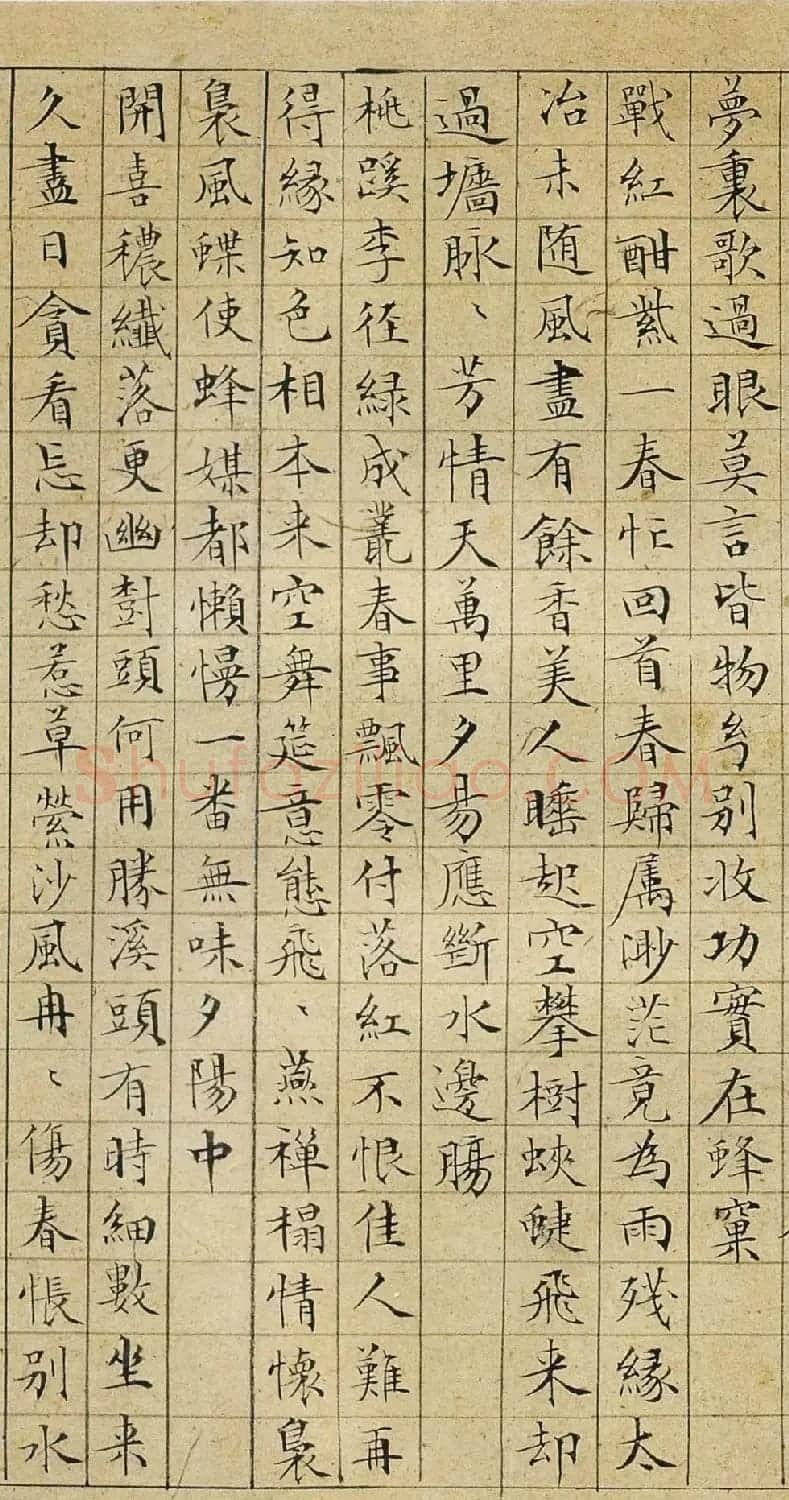 夢裏歌過眼莫言皆物幻別收功實在蜂窠
戰紅酣紫一春忙回首春歸屬渺茫竟為雨殘緣太
冶未随風盡有餘香美人睡起空攀樹蛺蝶飛来却
過墻脉〻芳情天萬里夕昜應斷水邊腸
桃蹊李徑緑成叢春事飄零付落紅不恨佳人難再
得縁知色相本来空舞筵意態飛〻燕禅榻情懷裊
裊風蝶使蜂媒都懶慢一番無味夕陽中
開喜穠纖落更幽對頭何用勝溪頭有時細數坐来
久盡日貪看忘却愁惹草縈沙風冉〻傷春悵別水
Shufazidao.COM